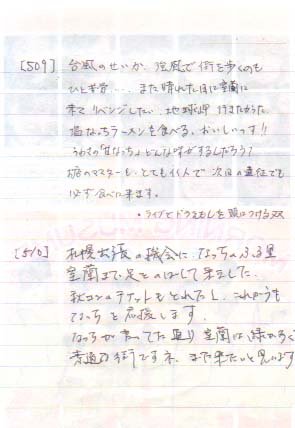 [509] 台風のせいか、強風で街を歩くのも
ひと苦労… また晴れた日に室蘭に
来て リベンジしたい。地球岬 行きたかった。
塩なっちラーメンを食べる。おいしいっす!!
うわさの「なっち」どんな味がするんだろう?
お店のマスターも とてもイイ人で 次回の遠征でも
必ず食べに来ます。
・ライブでドラえもんを頭につける
[510] 札幌出張の機会に なっちのふる里
室蘭まで 足をのばして来ました。
秋コンのチケットもとれたし、これからも
なっちを応援します。
なっちが言ってた通り 室蘭は緑が多く
素適な街ですネ、また来たいと思います